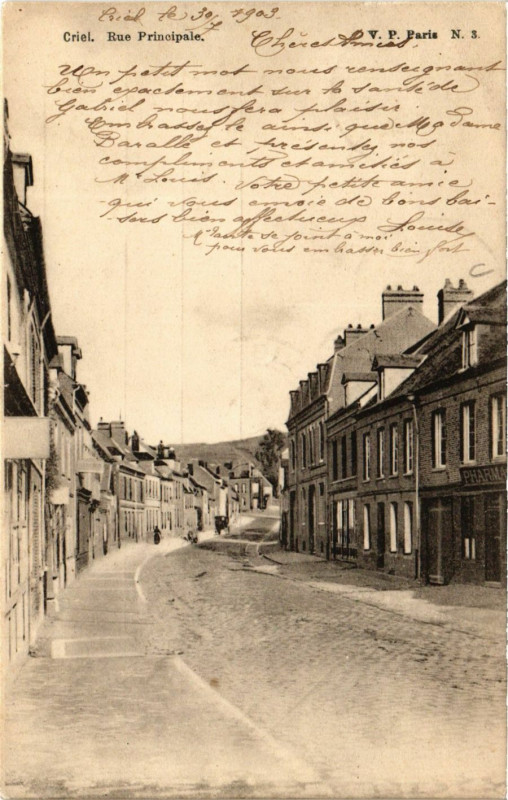 Criel le 30/7 1903.
Criel. Rue Principale.
V. P. Paris N. 3.
Chères Amies.
Un petit mot nous renseignant
bien exactement sur la santé de
Gabriel nous fera plaisir.
Embrassez le ainsi que Madame
Baralle et présentez nos
compliments et amitiés à
Mr Louis. Votre petite amie
qui vous envoie de bons bai-
sers bien affectueux Louise
se joint à moi
pour vous embrasser bien fort
PHARMA